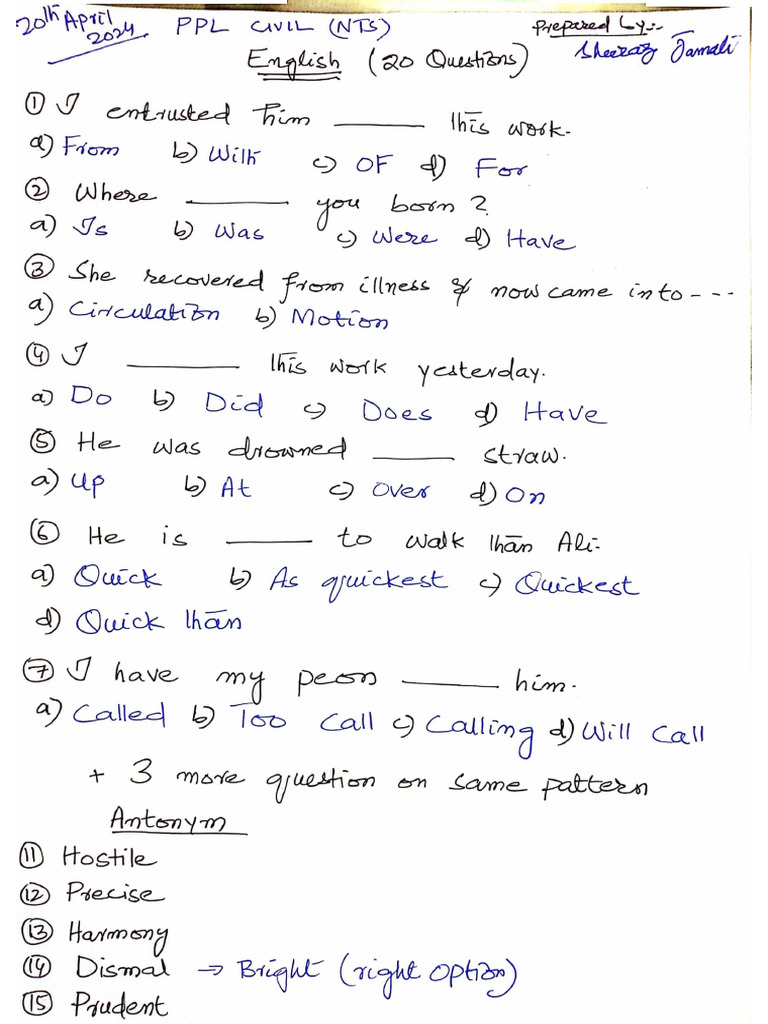 20th April 2024 PPL CIVIL (NTS) Prepared by:- Sheeraz Jamali
English (20 Questions)
① I entrusted him ______ this work.
a) From b) With c) OF d) For
② Where ______ you born?
a) Is b) Was c) Were d) Have
③ She recovered from illness & now came into ---
a) Circulation b) Motion
④ I ______ this work yesterday.
a) Do b) Did c) Does d) Have
⑤ He was drowned ______ straw.
a) Up b) At c) Over d) On
⑥ He is ______ to walk than Ali.
a) Quick b) As quickest c) Quickest
d) Quick than
⑦ I have my peon ______ him.
a) Called b) Too Call c) Calling d) Will Call
+ 3 more question on same pattern
Antonym
⑪ Hostile
⑫ Precise
⑬ Harmony
⑭ Dismal → Bright (right option)
⑮ Prudent